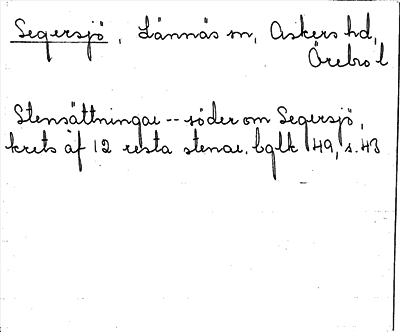 Segersjö, Lännäs sn, Askers hd,
Örebro l
Stensättningar -- söder om Segersjö,
krets af 12 resta stenar. bglk 149, s. 43